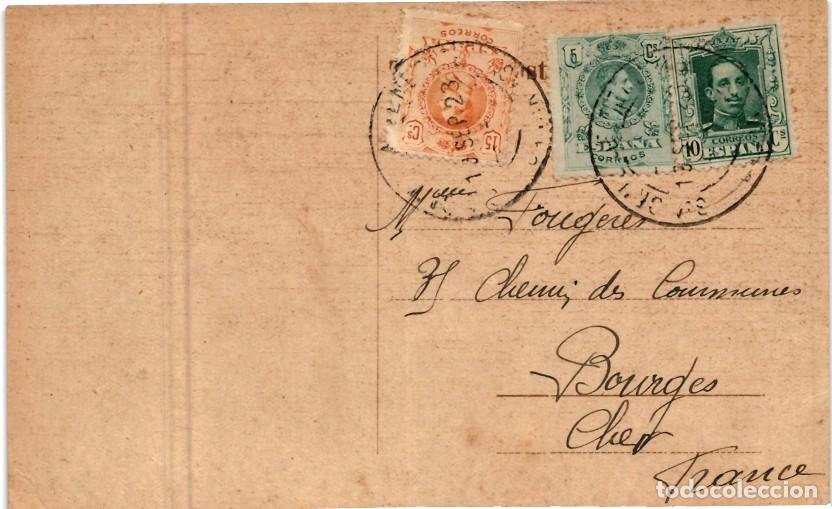 CORREOS
15 Cs
5 Cs
CORREOS
CORREOS
10 ESPAÑA Cs
13 SEP 23
Fougeres
Chemin des Communes
Bourges
Cher
France
todocoleccion